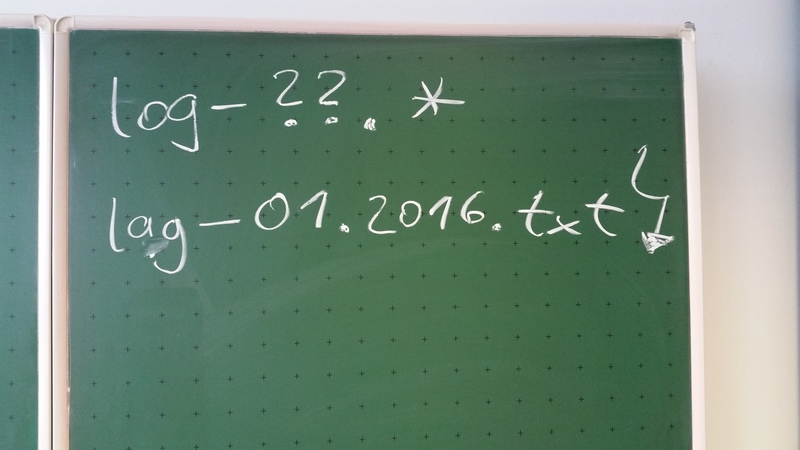 log-??.*
lag-01.2016.txt